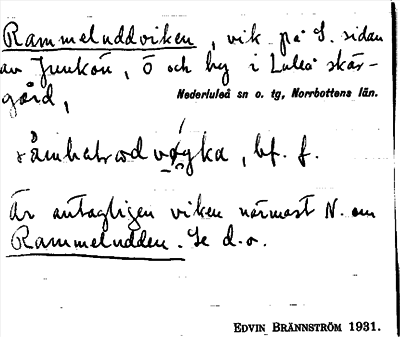 Rammeluddviken, vik på S. sidan
av Junkön, ö och by i Luleå skär-
gård,
Nederluleå sn o. tg, Norrbottens län.
bf. f.
Är antagligen viken närmast N. om
Rammeludden. Se d.o.
EDVIN BRÄNNSTRÖM 1931.